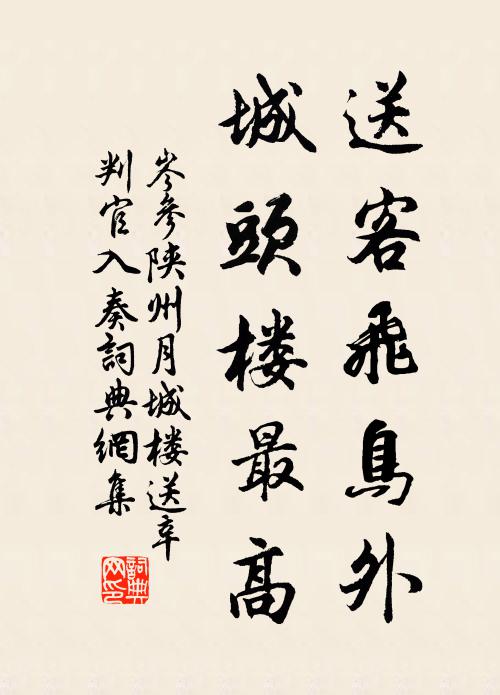 送客飛鳥外
城頭楼最高
岑參陝州月城楼送辛
判官入奏詞典網集
詞典
网印